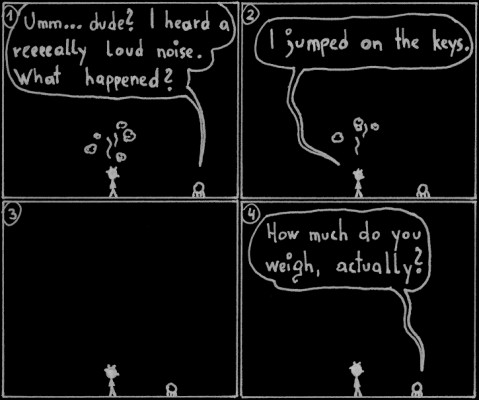 1
Umm... dude? I heard a
reeeeally loud noise.
What happened?
2
I jumped on the keys.
3
4
How much do you
weigh, actually?